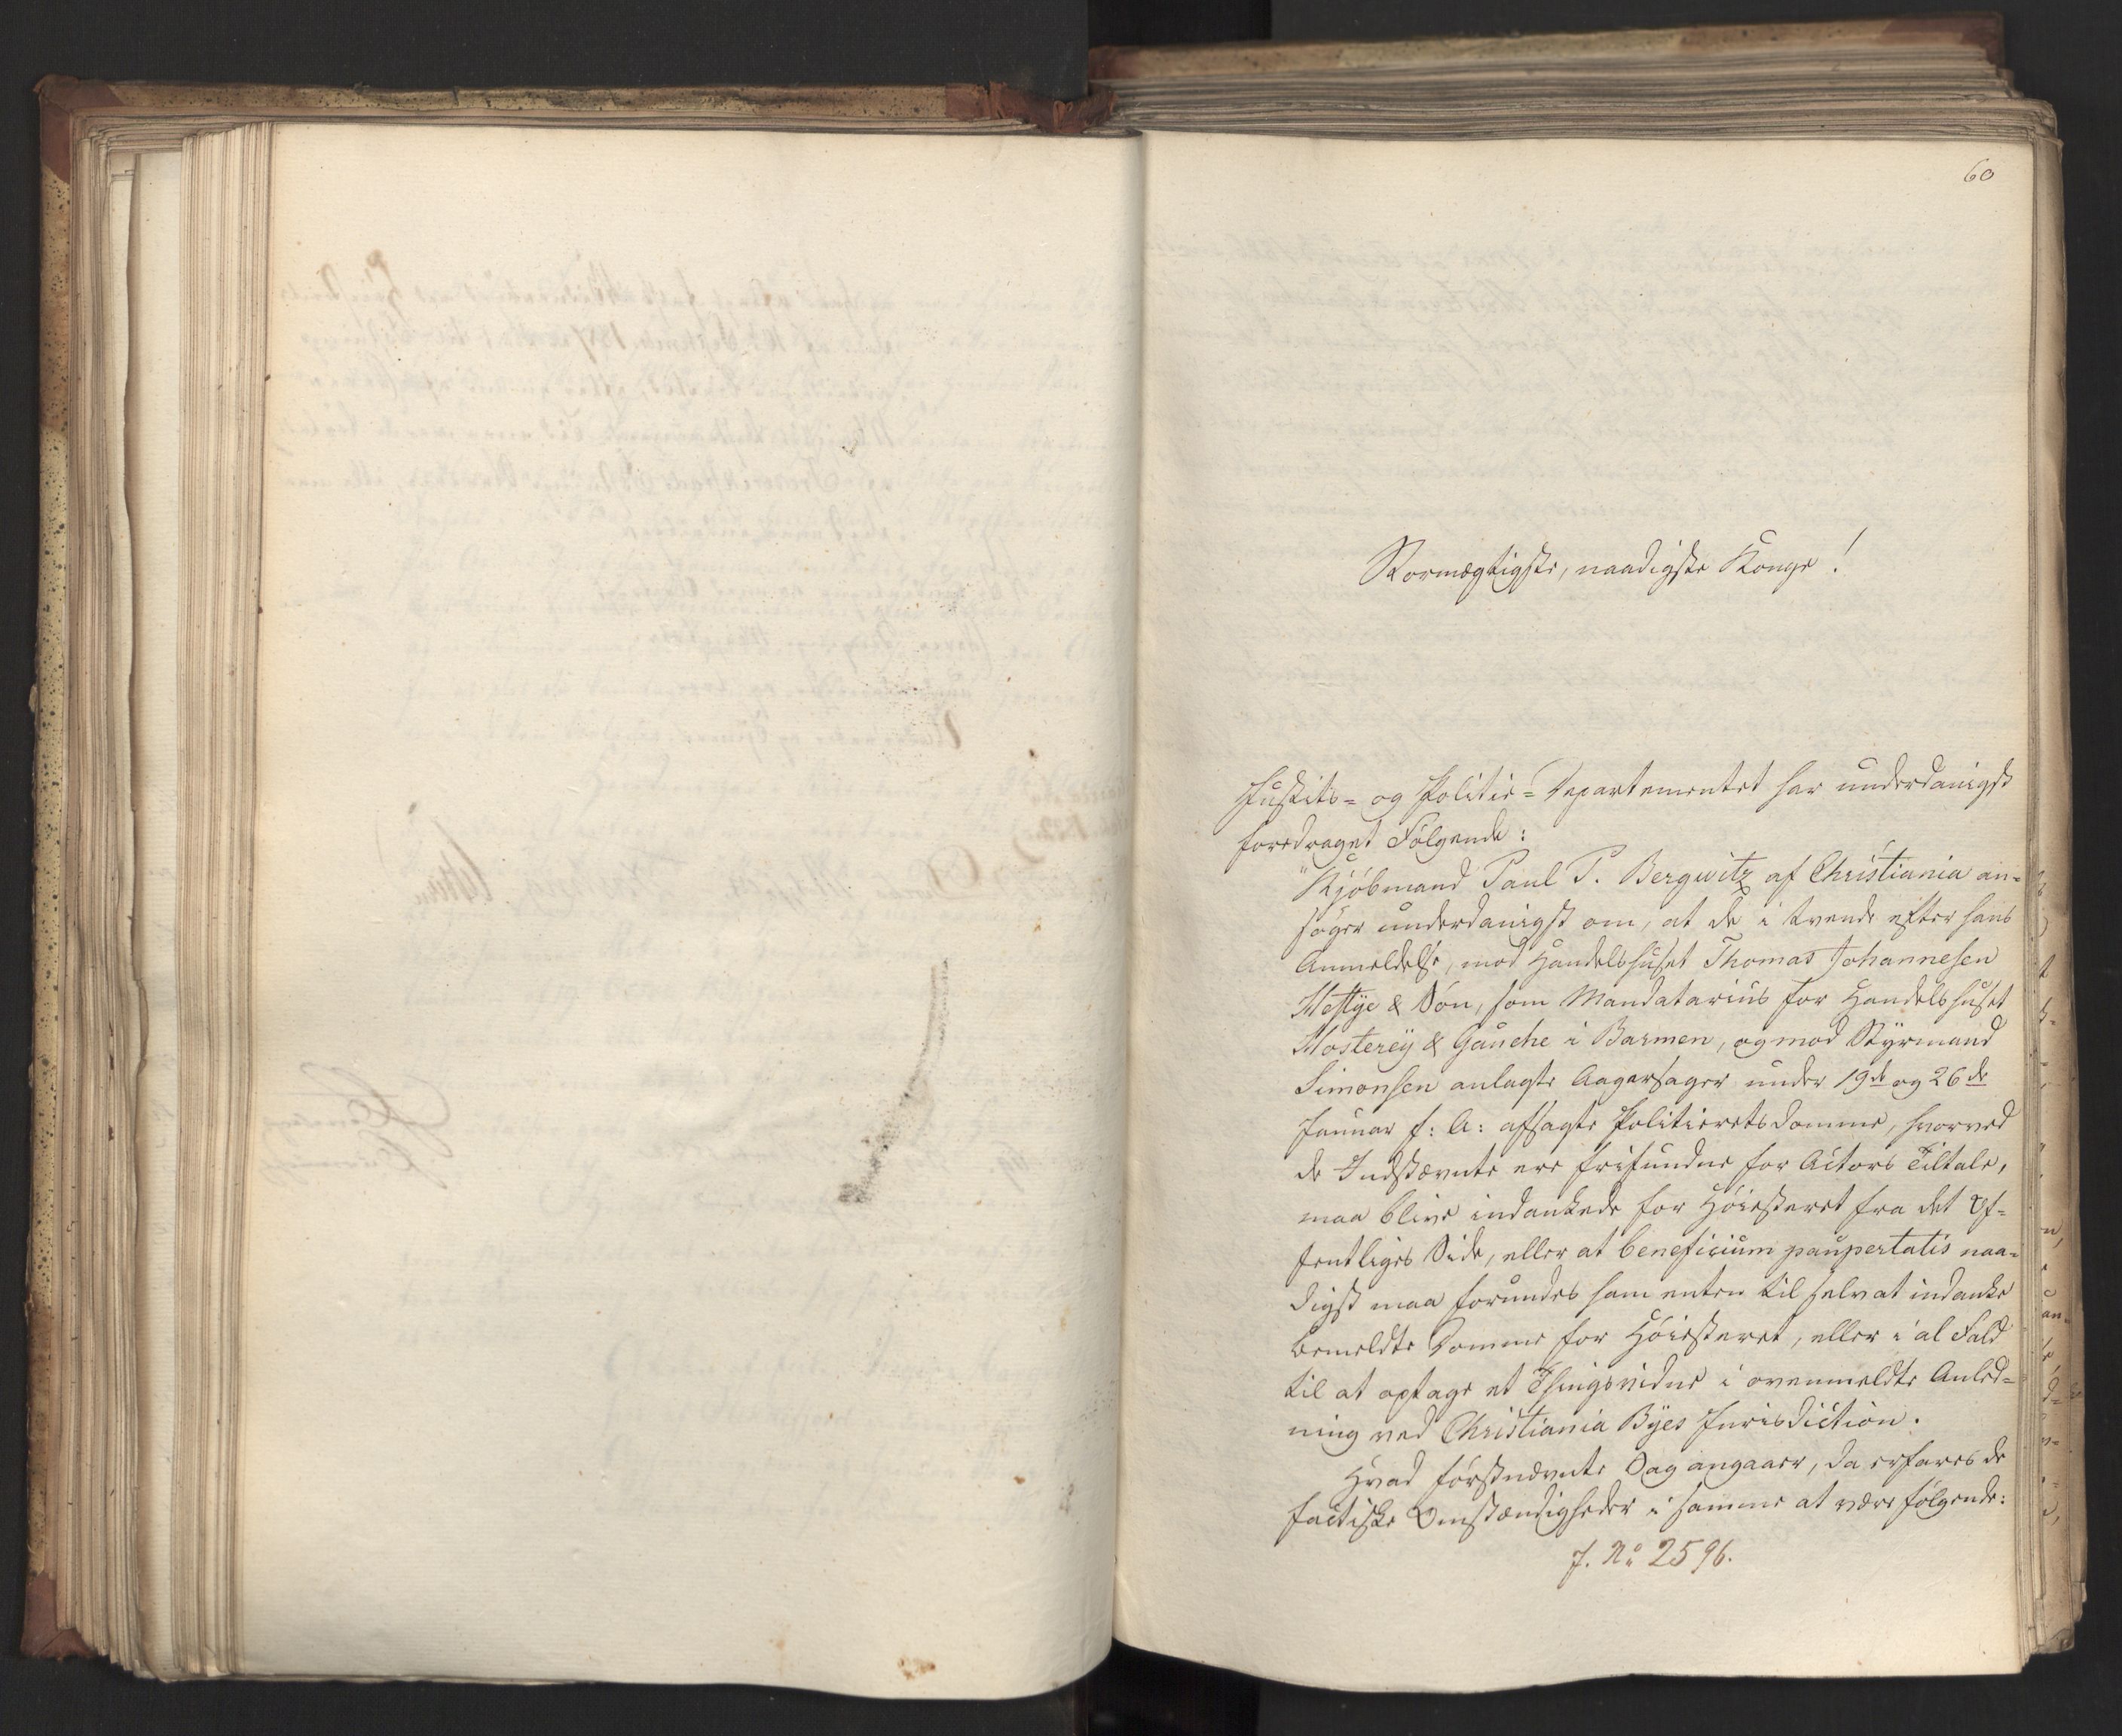 60
Stormægtigste, naadigste Konge!
Justits- og Politie-Departementet har underdanigst
foredraget Følgende:
"Kjøbmand Paul P. Bergwitz af Christiania an-
søger underdanigst om, at de i tvende efter hans
Anmeldelse, mod Handelshuset Thomas Johannesen
Heftye & Søn, som Mandatarius for Handelshuset
Mosterey & Gauche i Barmen, og mod Styrmand
Simonsen anlagte Aagersager under 19de og 26de
Januar f: A: afsagte Politieretsdomme, hvorved
de Indstævnte ere frifundne for Actors Tiltale,
maa blive indankede for Høiesteret fra det Of-
fentliges Side, eller at beneficium paupertatis naa-
digst maa forundes ham enten til selv at indanke
bemeldte Domme for Høiesteret, eller i al Fald
til at optage et Thingsvidne i ovenmeldte Anled-
ning ved Christiania Byes Jurisdiction.
Hvad førstnævnte Sag angaaer, da erfares de
factiske Omstændigheder i samme at være følgende:
J. No 2596.